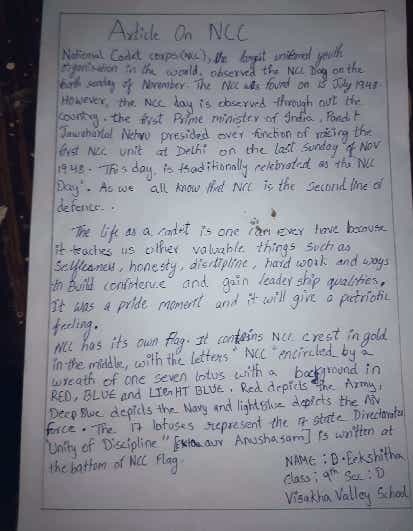 Article On NCC
National Cadet corps (NCC), the largest uniformed youth
organisation in the world, observed the NCC Day on the
fourth sunday of November. The NCC was found on 15 July 1948.
However, the NCC day is observed through out the
country. The first Prime minister of India, Pandit
Jawaharlal Nehru presided over function of raising the
first NCC unit at Delhi on the last Sunday of Nov
1948. This day, is traditionally celebrated as the NCC
Day". As we all know that NCC is the second line of
defence.
The life as a cadet is one can ever have because
it teaches us other valuable things such as
Selflessness, honesty, discipline, hard work and ways
to build confidence and gain leader ship qualities.
It was a pride moment and it will give a patriotic
feeling.
NCC has its own flag. It contains NCC crest in gold
in the middle, with the letters "NCC" encircled by a
wreath of one seven lotus with a background in
RED, BLUE and LIGHT BLUE. Red depicts the Army,
Deep Blue depicts the Navy and light Blue depicts the Air
force. The 17 lotuses represent the 17 state Directorates
"Unity of Discipline" [Ekta aur Anushasam] is written at
the bottom of NCC Flag.
NAME : B. Eekshitha
Class : 9th Sec : D
Visakha Valley School